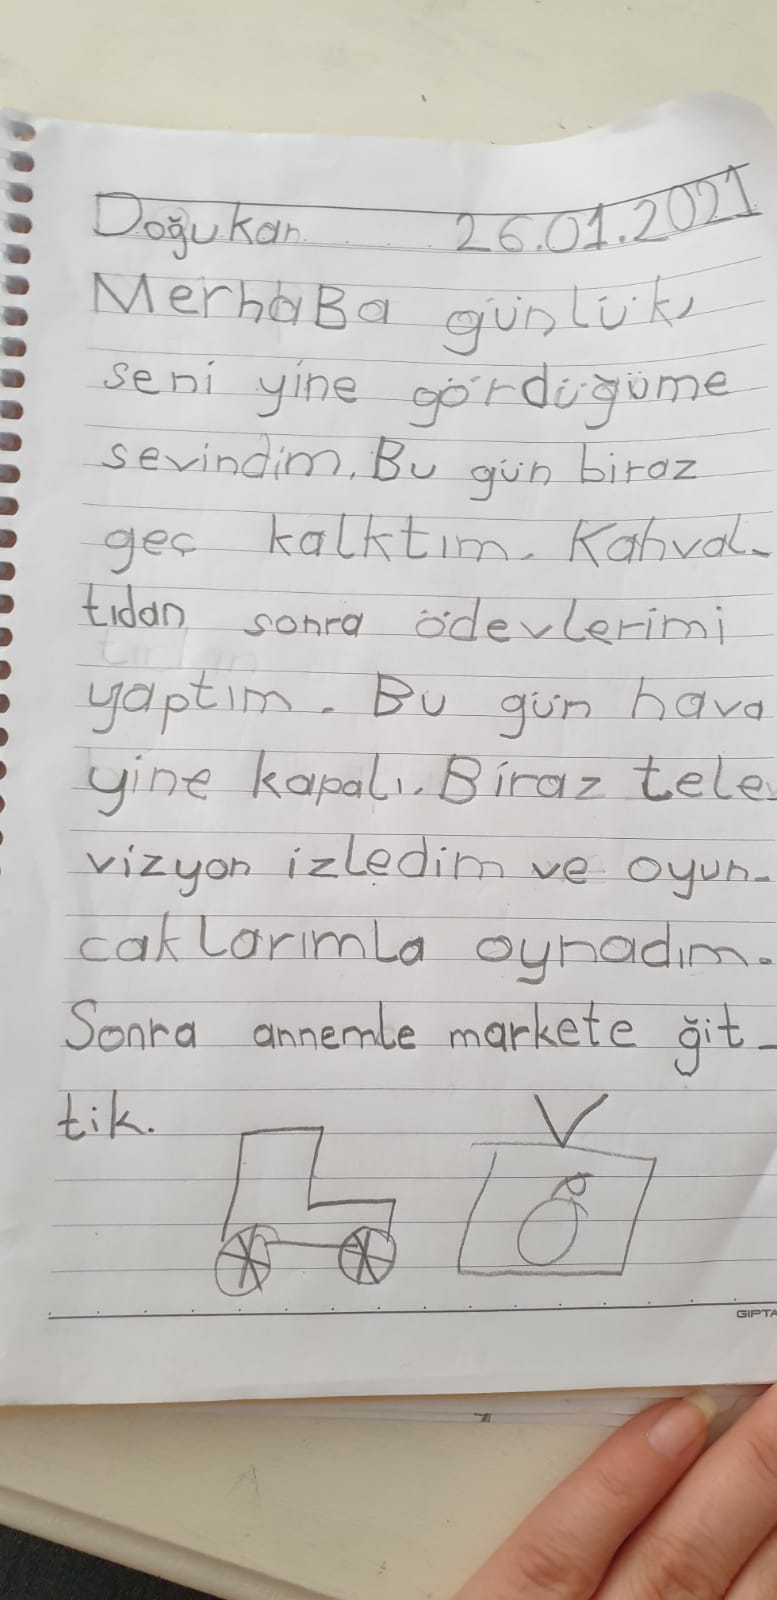 Doğukan 26.01.2021
MerhaBa günlük,
seni yine gördüğüme
sevindim. Bu gün biraz
geç kalktım. Kahval-
tıdan sonra ödevlerimi
yaptım. Bu gün hava
yine kapalı. Biraz tele-
vizyon izledim ve oyun-
caklarımla oynadım.
Sonra annemle markete ğit-
tik.
GIPTA